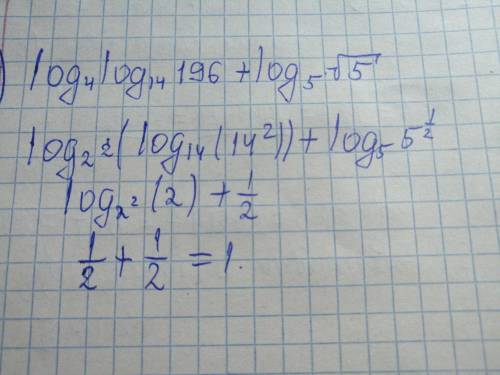 ) log₄ log₁₄ 196 + log₅ √5
log₂² (log₁₄ (14²)) + log₅ 5^(1/2)
log₂² (2) + 1/2
1/2 + 1/2 = 1.